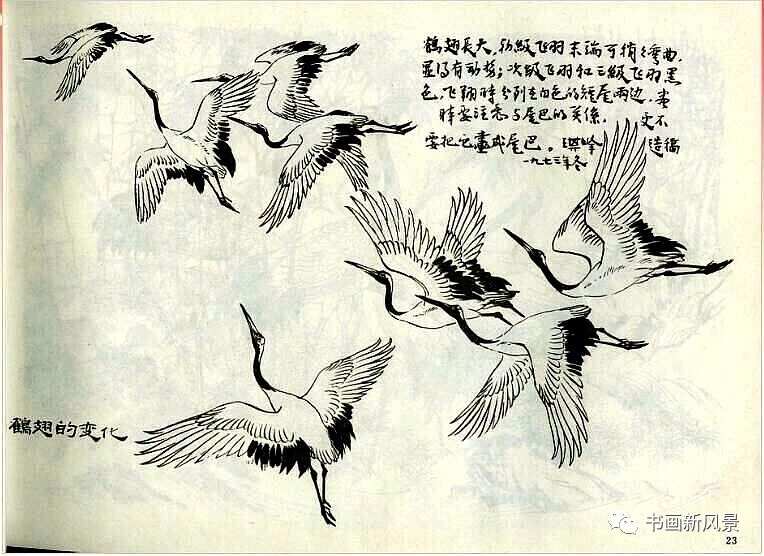 鶴翅長大,初級飞羽末端可稍稍弯曲,
显得有动势;次級飞羽和三級飞羽黑
色,飞翔時分别在白色的短尾两边,
時要注意与尾巴的关係,
要把它畫成尾巴。琪峰 造稿
一九七三年冬
鶴翅的变化
书画新风景
23